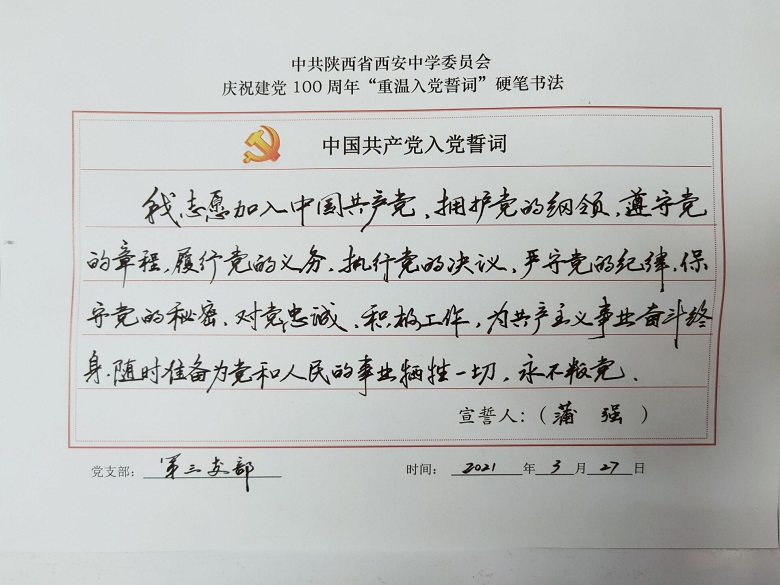 中共陕西省西安中学委员会
庆祝建党 100 周年“重温入党誓词”硬笔书法
中国共产党入党誓词
我志愿加入中国共产党、拥护党的纲领、遵守党
的章程,履行党的义务、执行党的决议、严守党的纪律,保
守党的秘密、对党忠诚、积极工作,为共产主义事业奋斗终
身.随时准备为党和人民的事业牺牲一切,永不叛党.
宣誓人:(蒲 强)
党支部: 第三支部 时间: 2021 年 3 月 27 日